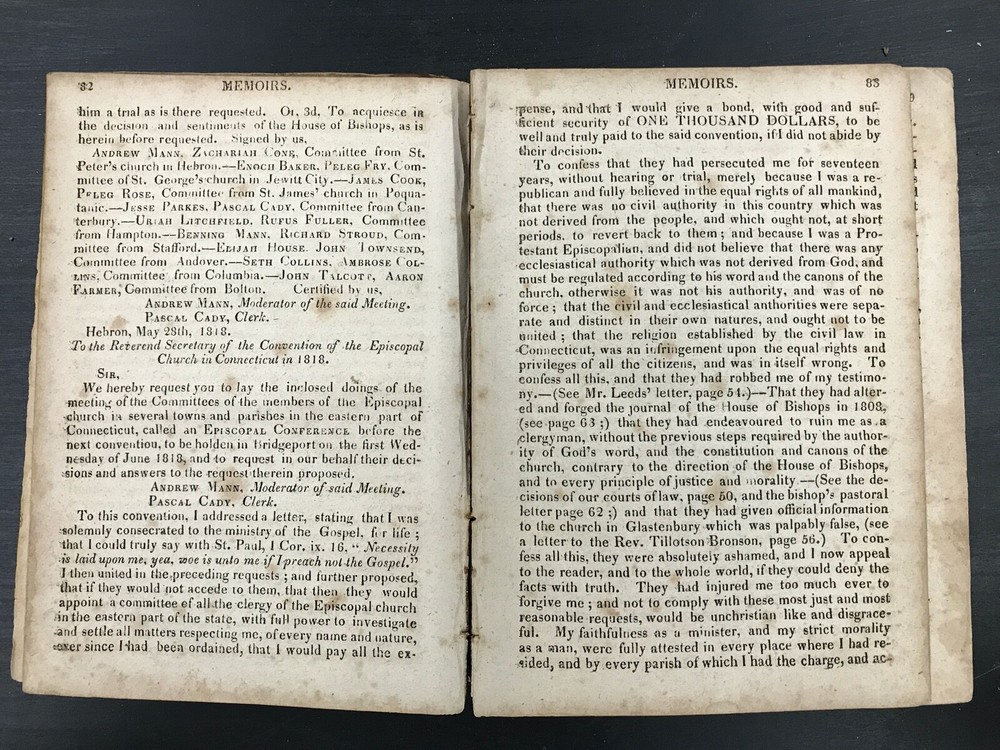 82 MEMOIRS.
him a trial as is there requested. Or, 3d, To acquiesce in
the decision and sentiments of the House of Bishops, as is
herein before requested. Signed by us,
ANDREW MANN, ZACHARIAH CONE, Committee from St.
Peter's church in Hebron.—ENOCH BAKER, PELEG FRY, Com-
mittee of St. George's church in Jewitt City.—JAMES COOK,
PELEG ROSE, Committee from St. James' church in Poqua-
tanic.—JESSE PARKES, PASCAL CADY, Committee from Can-
terbury.—URIAH LITCHFIELD, RUFUS FULLER, Committee
from Hampton.—BENNING MANN, RICHARD STROUD, Com-
mittee from Stafford.—ELIJAH HOUSE, JOHN TOWNSEND,
Committee from Andover.—SETH COLLINS, AMBROSE COL-
LINS, Committee from Columbia.—JOHN TALCOTT, AARON
FARMER, Committee from Bolton. Certified by us,
ANDREW MANN, Moderator of the said Meeting.
PASCAL CADY, Clerk.
Hebron, May 28th, 1818.
To the Reverend Secretary of the Convention of the Episcopal
Church in Connecticut in 1818.
SIR,
We hereby request you to lay the inclosed doings of the
meeting of the Committees of the members of the Episcopal
church in several towns and parishes in the eastern part of
Connecticut, called an EPISCOPAL CONFERENCE before the
next convention, to be holden in Bridgeport on the first Wed-
nesday of June 1818, and to request in our behalf their deci-
sions and answers to the request therein proposed.
ANDREW MANN, Moderator of said Meeting.
PASCAL CADY, Clerk.
To this convention, I addressed a letter, stating that I was
solemnly consecrated to the ministry of the Gospel, for life ;
that I could truly say with St. Paul, 1 Cor. ix. 16, "Necessity
is laid upon me, yea, woe is unto me if I preach not the Gospel."
I then united in the preceding requests ; and further proposed,
that if they would not accede to them, that then they would
appoint a committee of all the clergy of the Episcopal church
in the eastern part of the state, with full power to investigate
and settle all matters respecting me, of every name and nature,
ever since I had been ordained, that I would pay all the ex-
MEMOIRS. 83
pense, and that I would give a bond, with good and suf-
ficient security of ONE THOUSAND DOLLARS, to be
well and truly paid to the said convention, if I did not abide by
their decision.
To confess that they had persecuted me for seventeen
years, without hearing or trial, merely because I was a re-
publican and fully believed in the equal rights of all mankind,
that there was no civil authority in this country which was
not derived from the people, and which ought not, at short
periods, to revert back to them ; and because I was a Pro-
testant Episcopalian, and did not believe that there was any
ecclesiastical authority which was not derived from God, and
must be regulated according to his word and the canons of the
church, otherwise it was not his authority, and was of no
force ; that the civil and ecclesiastical anthorities were sepa-
rate and distinct in their own natures, and ought not to be
united ; that the religion established by the civil law in
Connecticut, was an infringement upon the equal rights and
privileges of all the citizens, and was in itself wrong. To
confess all this, and that they had robbed me of my testimo-
ny.—(See Mr. Leeds' letter, page 54.)—That they had alter-
ed and forged the journal of the House of Bishops in 1808,
(see page 63 ;) that they had endeavoured to ruin me as a
clergyman, without the previous steps required by the author-
ity of God's word, and the constitution and canons of the
church, contrary to the direction of the House of Bishops,
and to every principle of justice and morality.—(See the de-
cisions of our courts of law, page 50, and the bishop's pastoral
letter page 62 ;) and that they had given official information
to the church in Glastenbury which was palpably false, (see
a letter to the Rev. Tillotson Bronson, page 56.) To con-
fess all this, they were absolutely ashamed, and I now appeal
to the reader, and to the whole world, if they could deny the
facts with truth. They had injured me too much ever to
forgive me ; and not to comply with these most just and most
reasonable requests, would be unchristian like and disgrace-
ful. My faithfulness as a minister, and my strict morality
as a man, were fully attested in every place where I had re-
sided, and by every parish of which I had the charge, and ac-